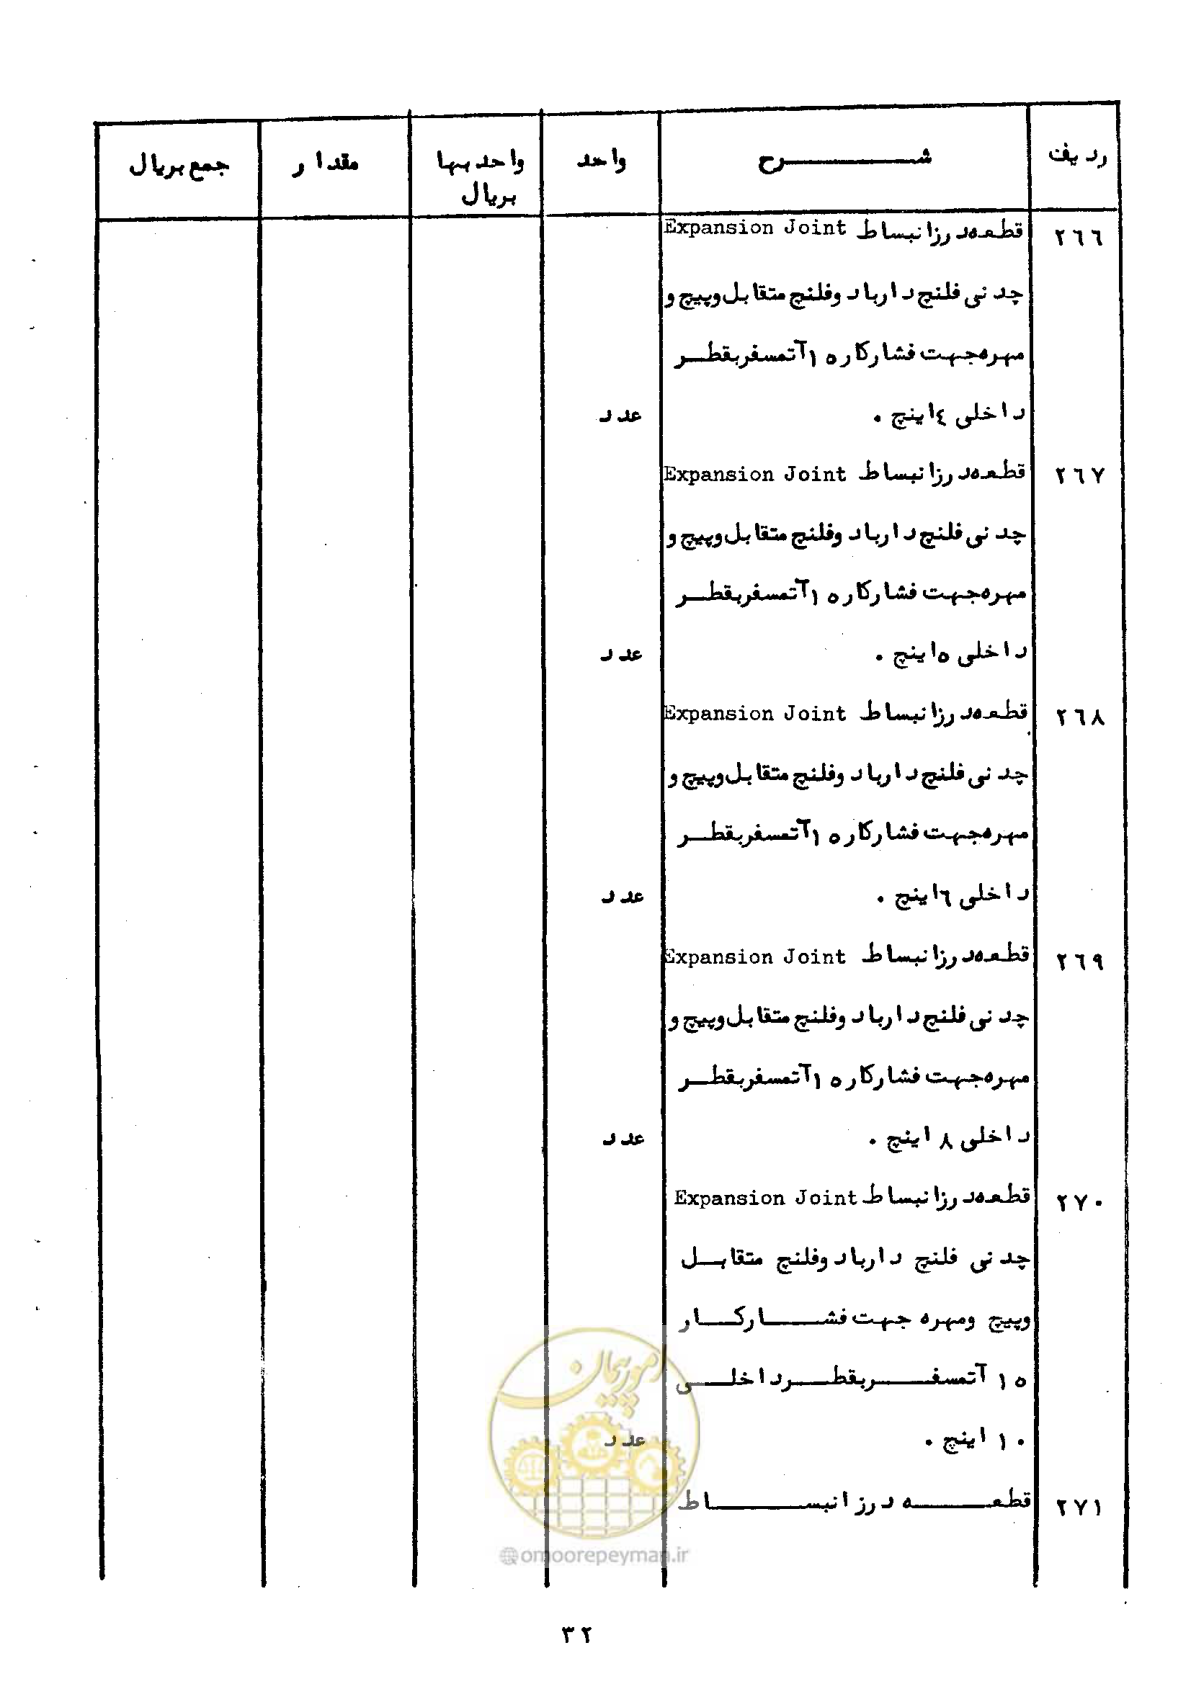 ردیف شرح واحد واحد بها مقدار جمع بریال
بریال
۲۶۶ قطعه درز انبساط Expansion Joint
چدنی فلنج دار باد و فلنج متقابل و پیچ و
مهره جهت فشار کار ۱۵ آتمسفر بقطر
داخلی ۴ اینچ . عدد
۲۶۷ قطعه درز انبساط Expansion Joint
چدنی فلنج دار باد و فلنج متقابل و پیچ و
مهره جهت فشار کار ۱۵ آتمسفر بقطر
داخلی ۵ اینچ . عدد
۲۶۸ قطعه درز انبساط Expansion Joint
چدنی فلنج دار باد و فلنج متقابل و پیچ و
مهره جهت فشار کار ۱۵ آتمسفر بقطر
داخلی ۶ اینچ . عدد
۲۶۹ قطعه درز انبساط Expansion Joint
چدنی فلنج دار باد و فلنج متقابل و پیچ و
مهره جهت فشار کار ۱۵ آتمسفر بقطر
داخلی ۸ اینچ . عدد
۲۷۰ قطعه درز انبساط Expansion Joint
چدنی فلنج دار باد و فلنج متقابل
و پیچ و مهره جهت فشار کار
۱۵ آتمسفر بقطر داخلی
۱۰ اینچ . عدد
۲۷۱ قطعه درز انبساط
امور پیمان
@omoorepeyman.ir
۳۲